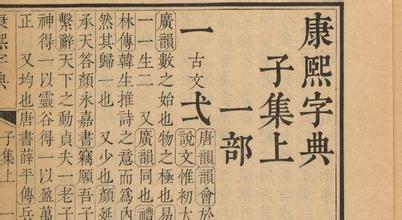 康熙字典
子集上
一部
一 古文弌
唐韻韻會於
說文惟初大
廣韻數之始也物之極也易
一一生二 又廣韻同也禮
林傳韓生推詩之意而爲內
然其歸一也 又少也顏延
承天答顏永嘉書竊願吾子
繫辭天下之動貞夫一老子
神得一以靈谷得一以盈萬
正 又均也唐書薛平傳兵
康熙字典 子集上 一